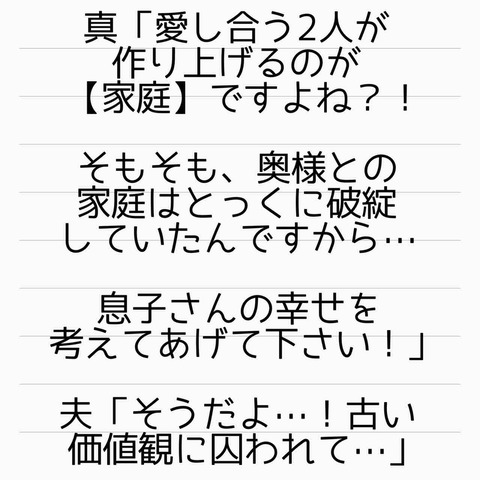 真「愛し合う2人が
作り上げるのが
【家庭】ですよね？！
そもそも、奥様との
家庭はとっくに破綻
していたんですから…
息子さんの幸せを
考えてあげて下さい！」
夫「そうだよ…！古い
価値観に囚われて…」